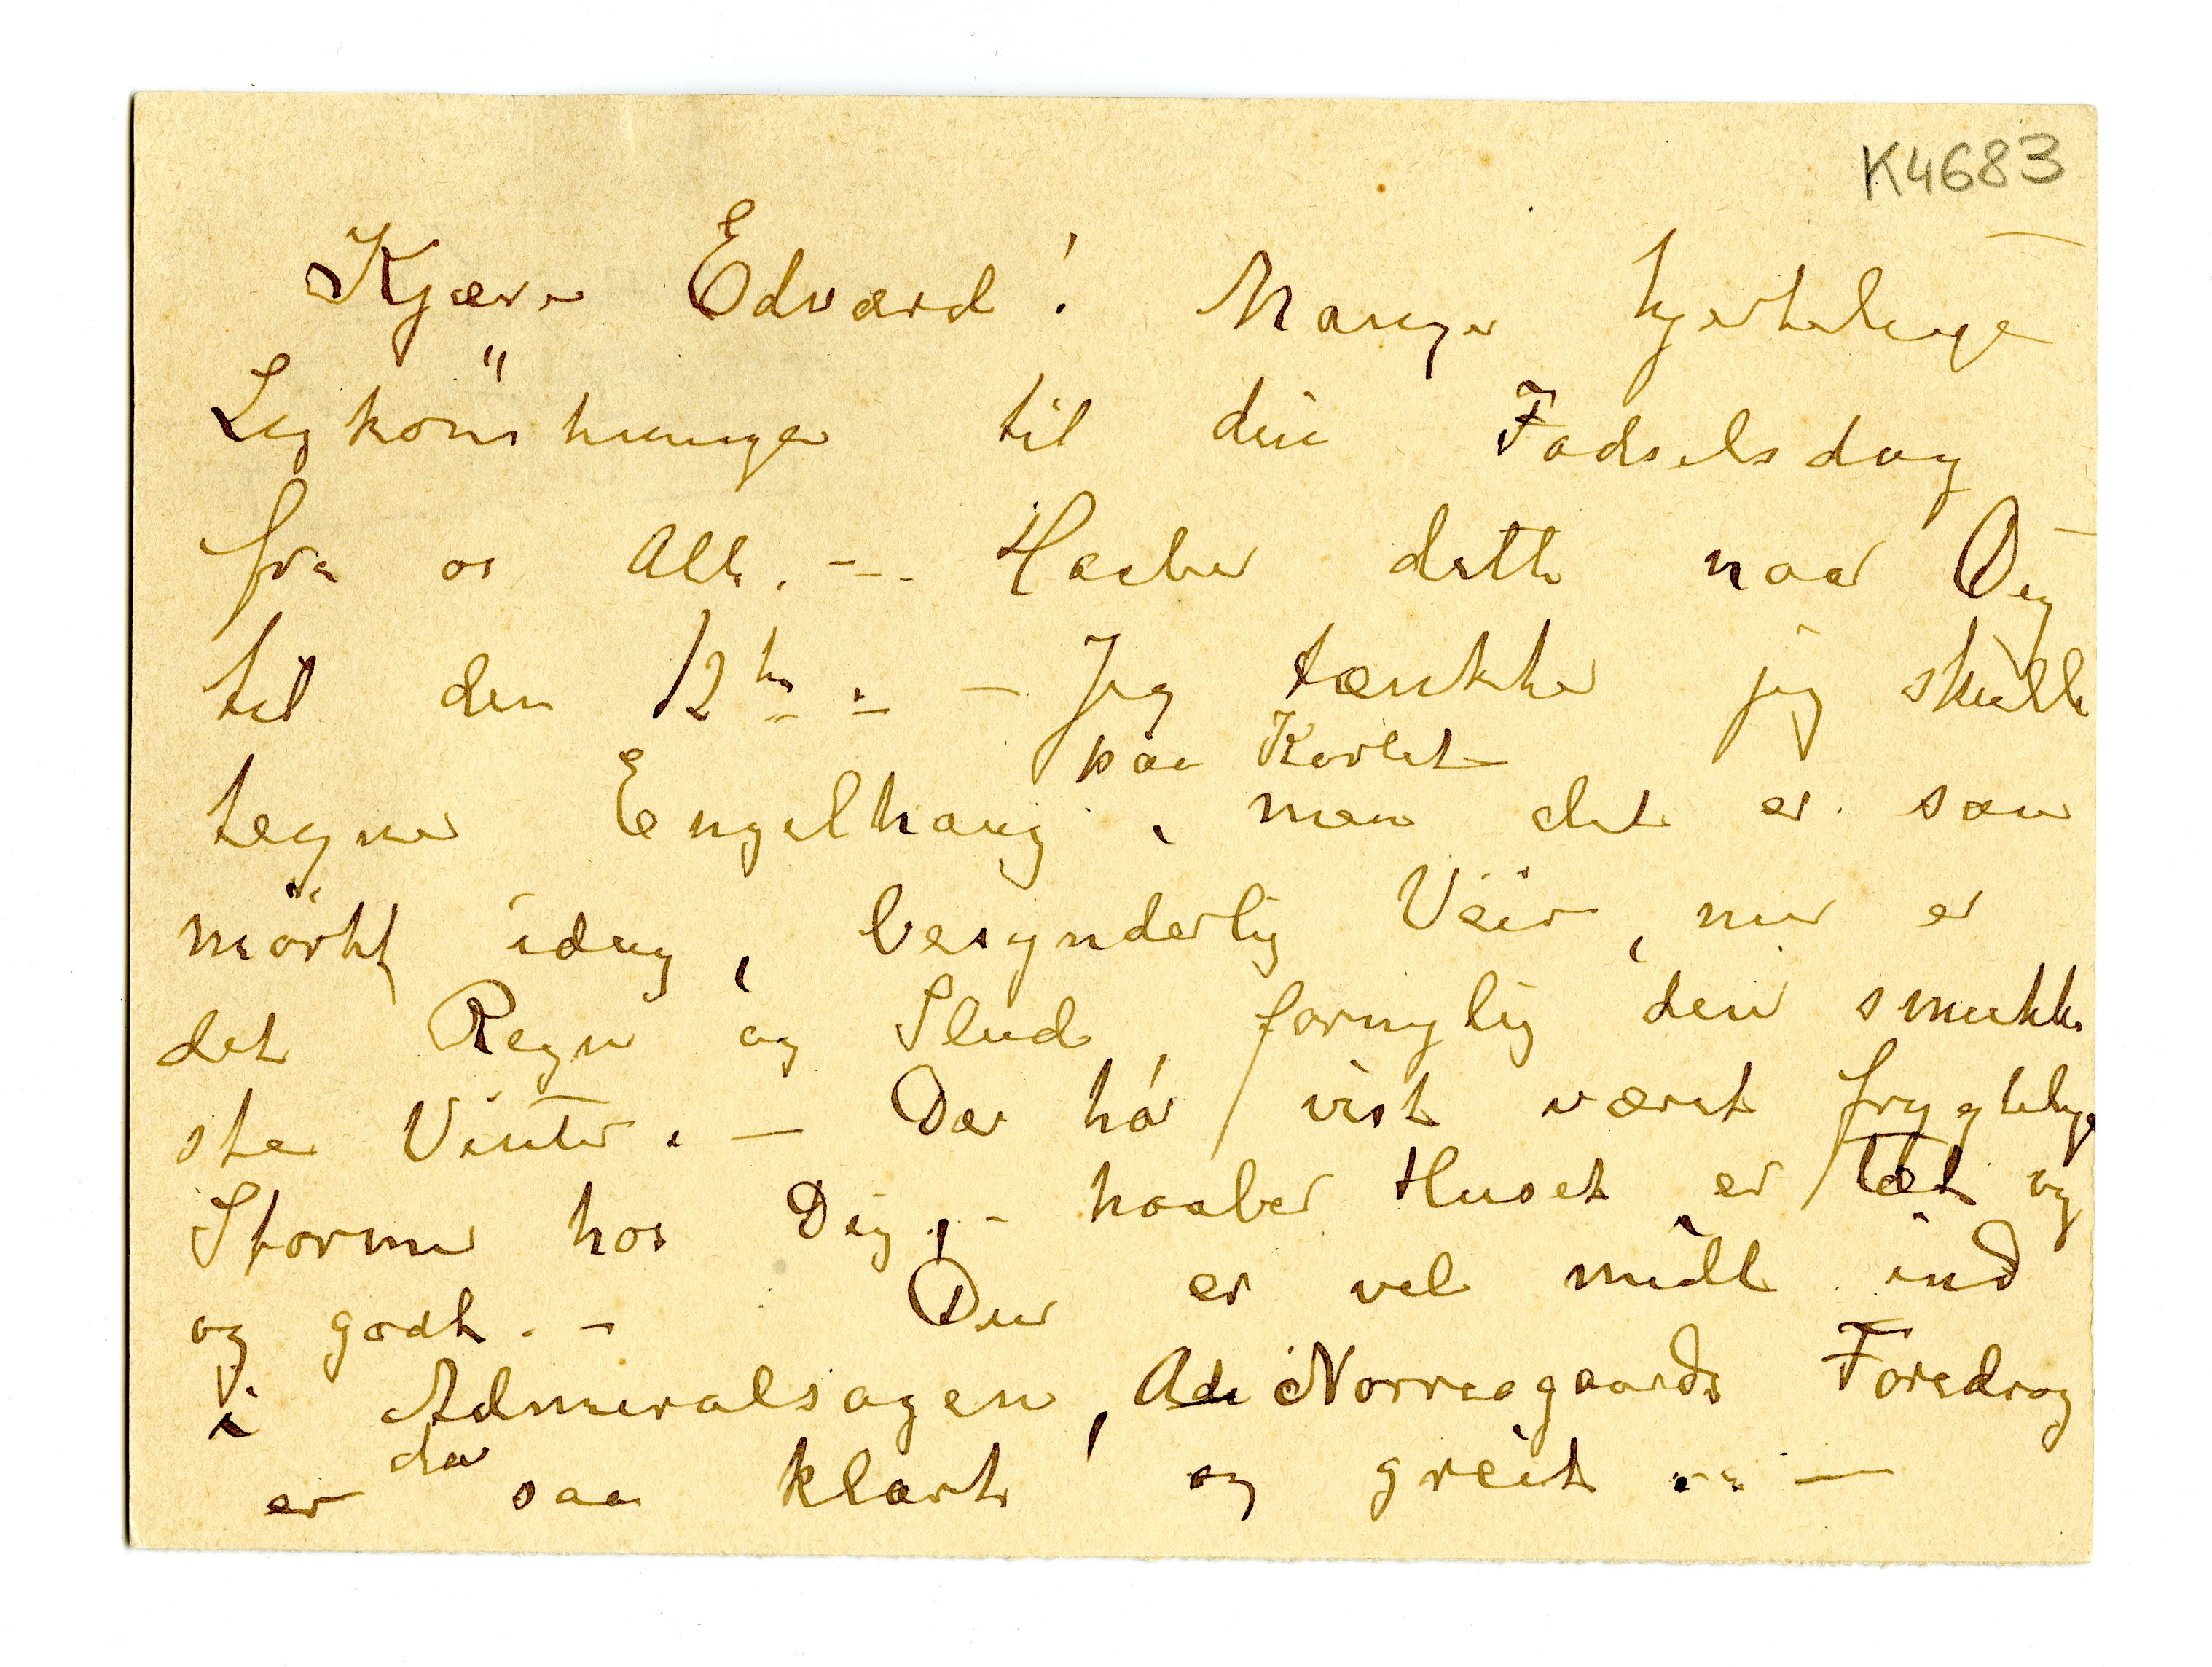 K4683
Kjære Edvard! Mange hjertelige
Lykönskninger til din Fødselsdag
fra os Alle. — Haaber dette naar Dig
til den 12te. — Jeg tænkte jeg skulle
paa Kortet
tegne Engelhaug, men det er saa
mörkt idag, besynderlig Veir, nu er
det Regn og Slud, fornylig den smukke
ste Vinter. — Der har vist været frygtelige
Storme hos Dig, - haaber Huset er tæt og
og godt. - Du er vel midt ind
i Admiralsagen, Ade Norregaards Foredrag
da
er saa klart og greit .. —